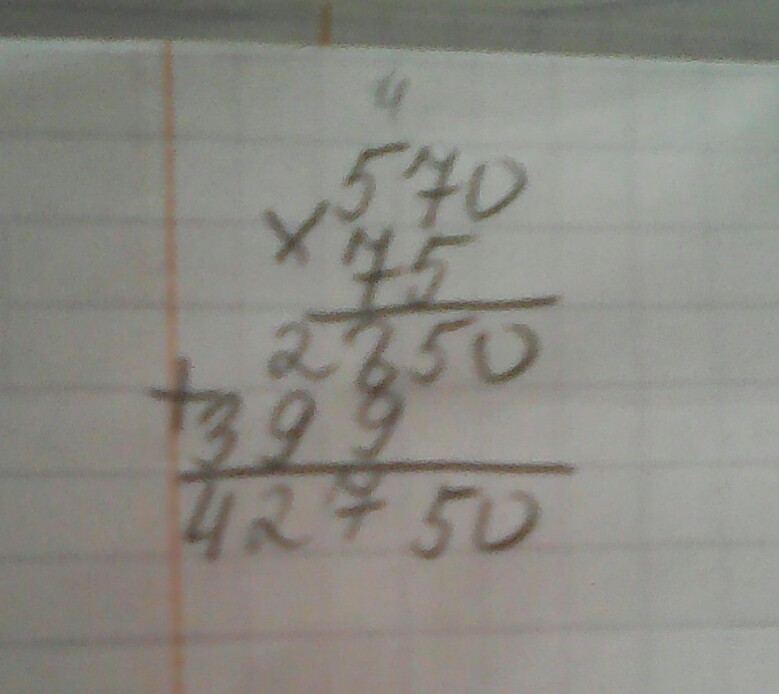 4
570
× 75
2850
+ 399
42750